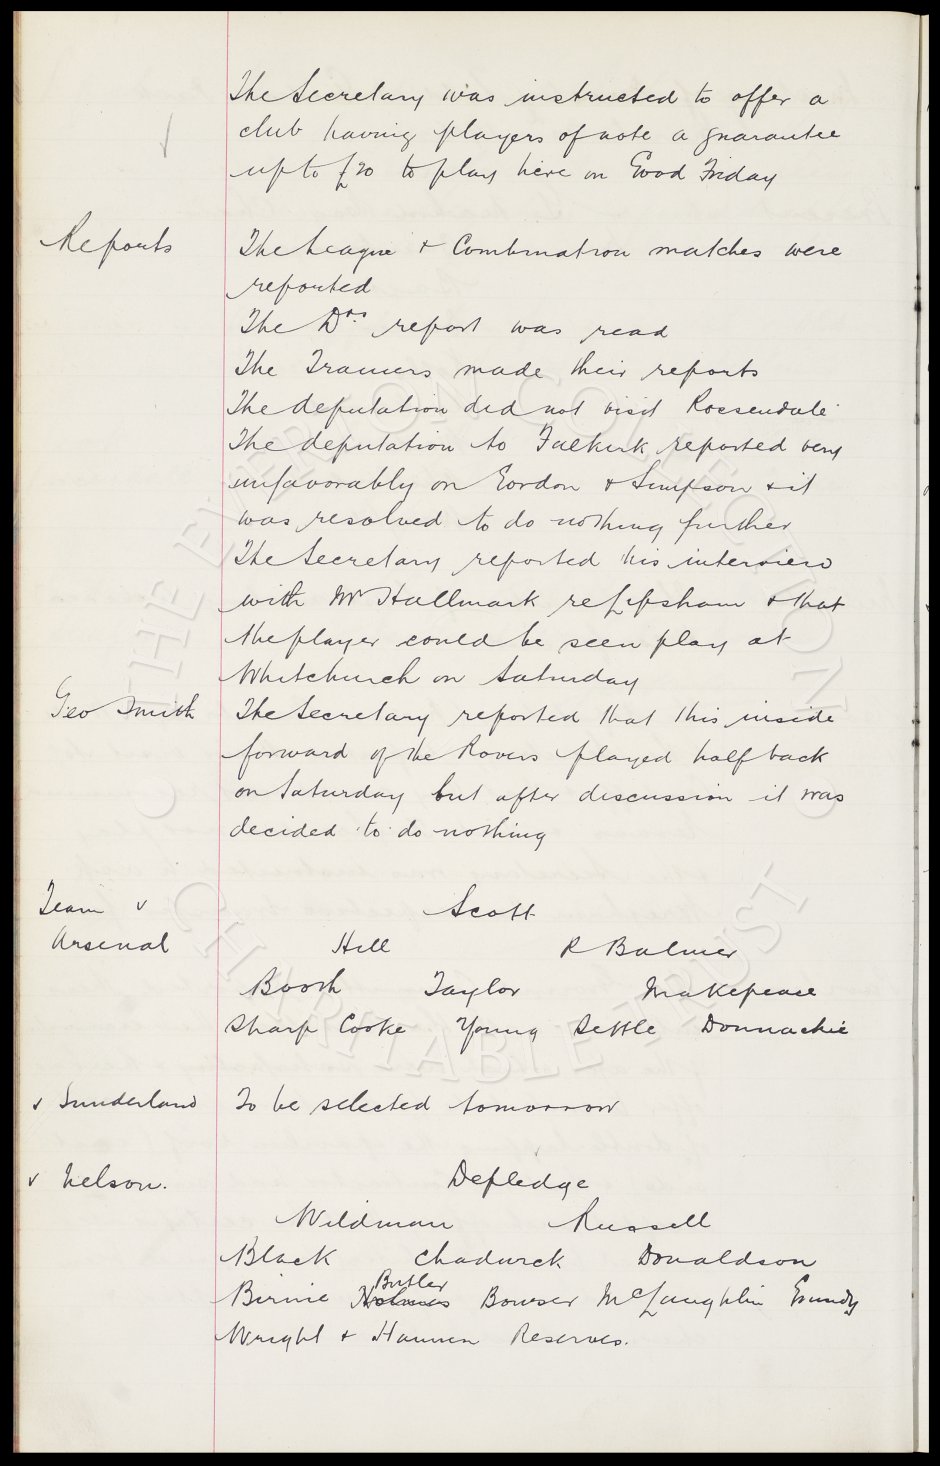 The Secretary was instructed to offer a
club having players of note a guarantee
up to £20 to play here on Good Friday
Reports
The League & Combination matches were
reported
The Drs report was read
The Trainers made their reports
The deputation did not visit Rossendale
The deputation to Falkirk reported very
unfavorably on Gordon & Simpson & it
was resolved to do nothing further
The Secretary reported his interview
with Mr Hallmark re Lipsham & that
the player could be seen play at
Whitchurch on Saturday
Geo Smith
The Secretary reported that this inside
forward of the Rovers played half back
on Saturday but after discussion it was
decided to do nothing
Team v
Arsenal
Scott
Hill R Balmer
Booth Taylor Makepeace
Sharp Cooke Young Settle Donnachie
v Sunderland
To be selected tomorrow
v Nelson.
Depledge
Wildman Russell
Black Chadwick Donaldson
Butler
Birnie Holmes Bowser McLaughlin Grundy
Wright & Hannen Reserves.
THE EVERTON COLLECTION
CHARITABLE TRUST